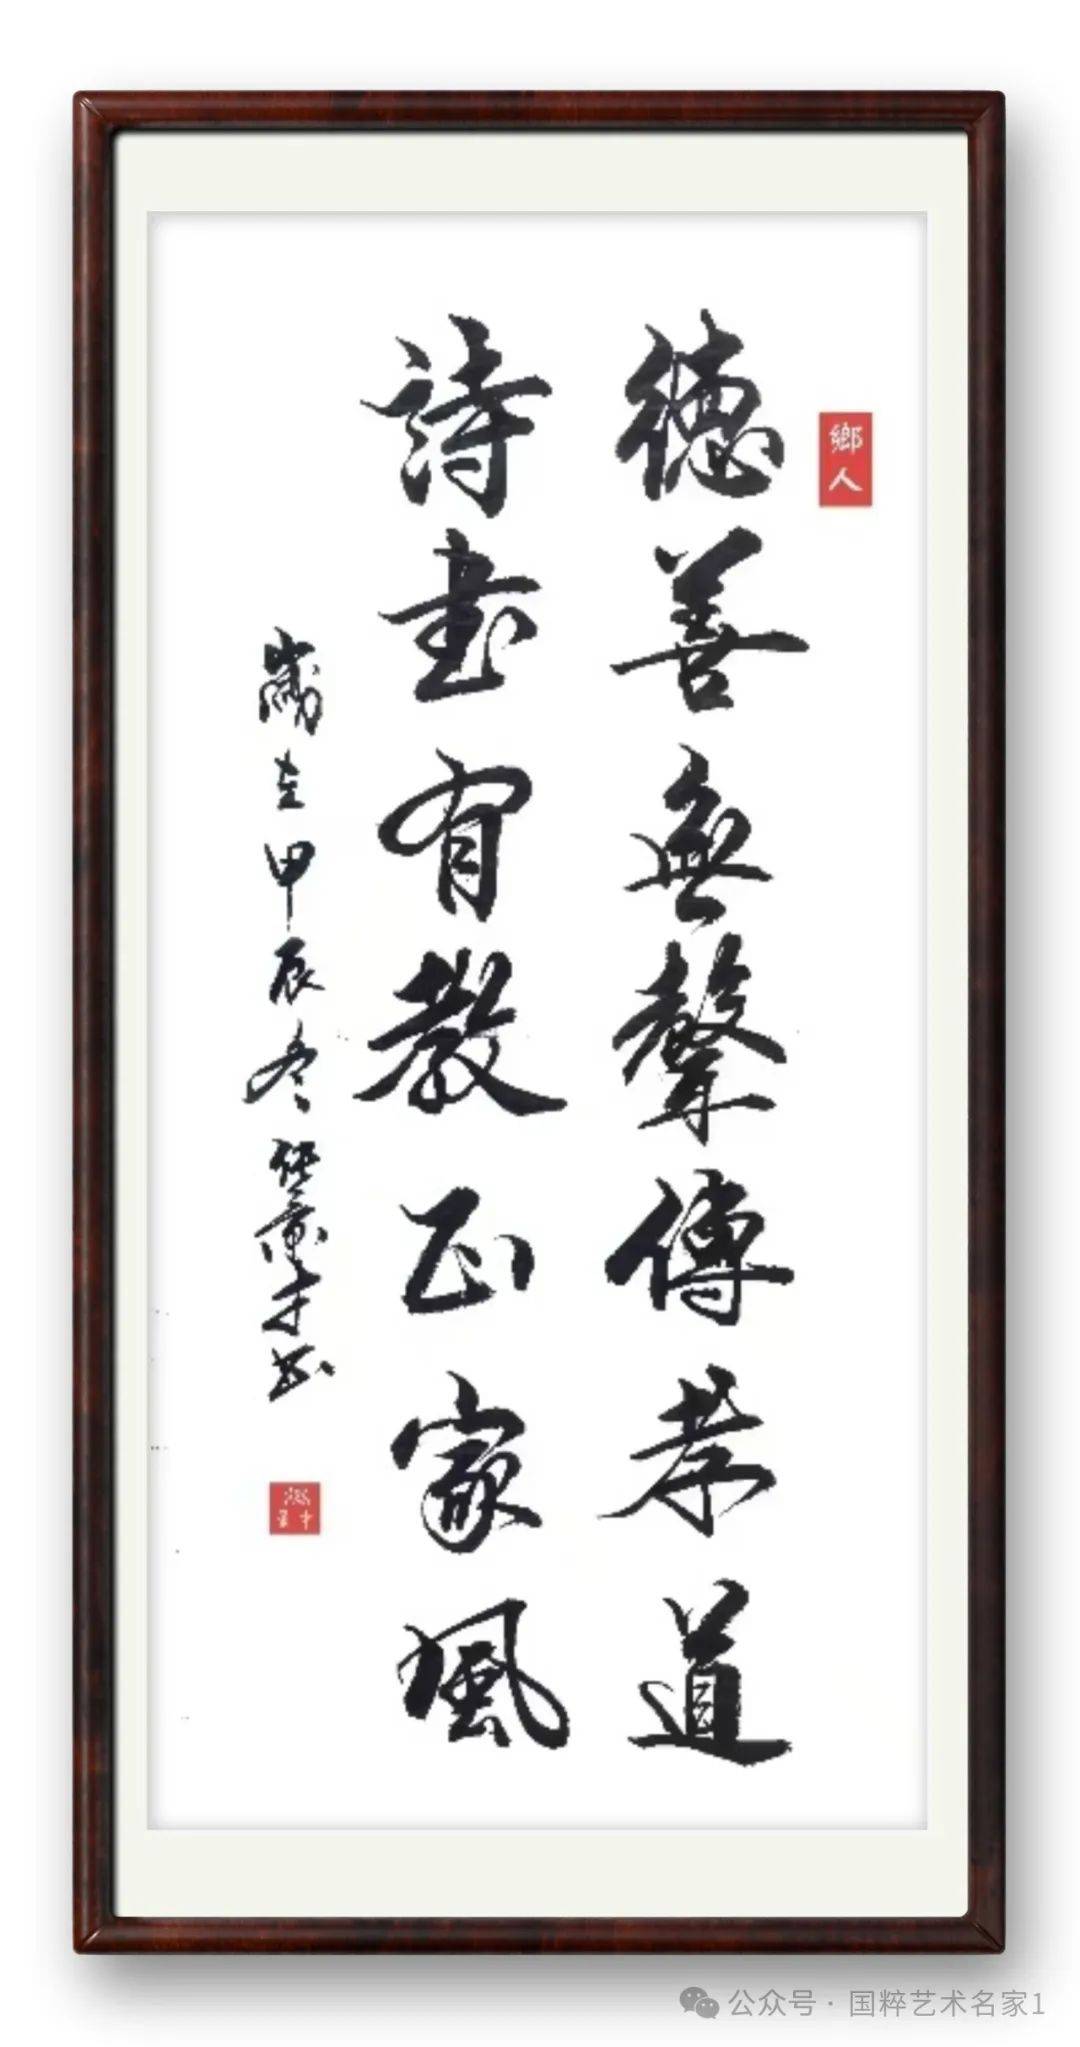 鄉人
德善無聲傳孝道
詩書有教正家風
歲在甲辰冬張景才書
公众号 · 国粹艺术名家1